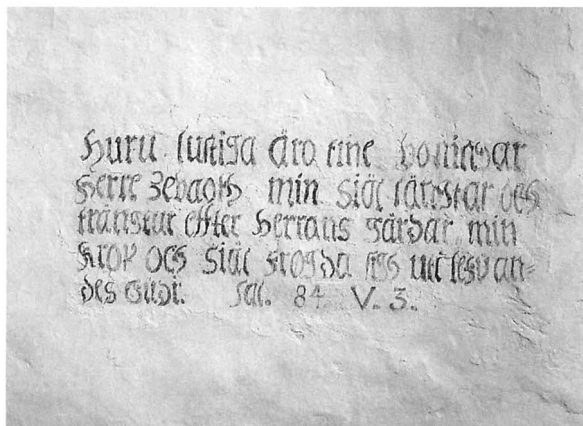 Huru lustiga äro tine boningar
Herre Zebaoth min Siäl länstar och
trängtar effter Herrans gårdar min
krop och Siäl frögda sigh uti lefvan=
des Gudi. Psal. 84 V. 3.